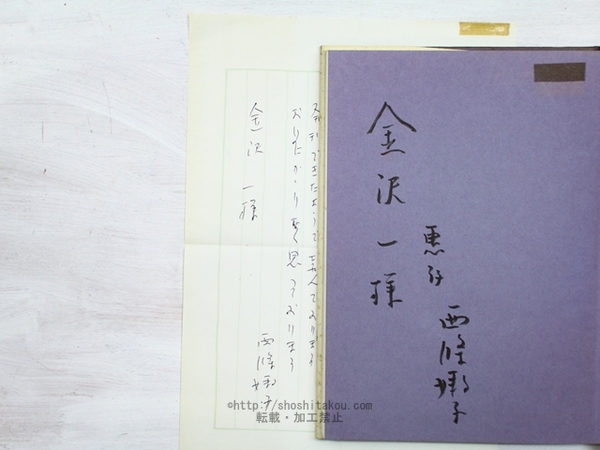 金沢一様
恵存
西條嫩子
発刊できたようで喜んでおります
ありがたかり 思っております
西條嫩子
金沢 一様
©http://shoshitakou.com
転載・加工禁止